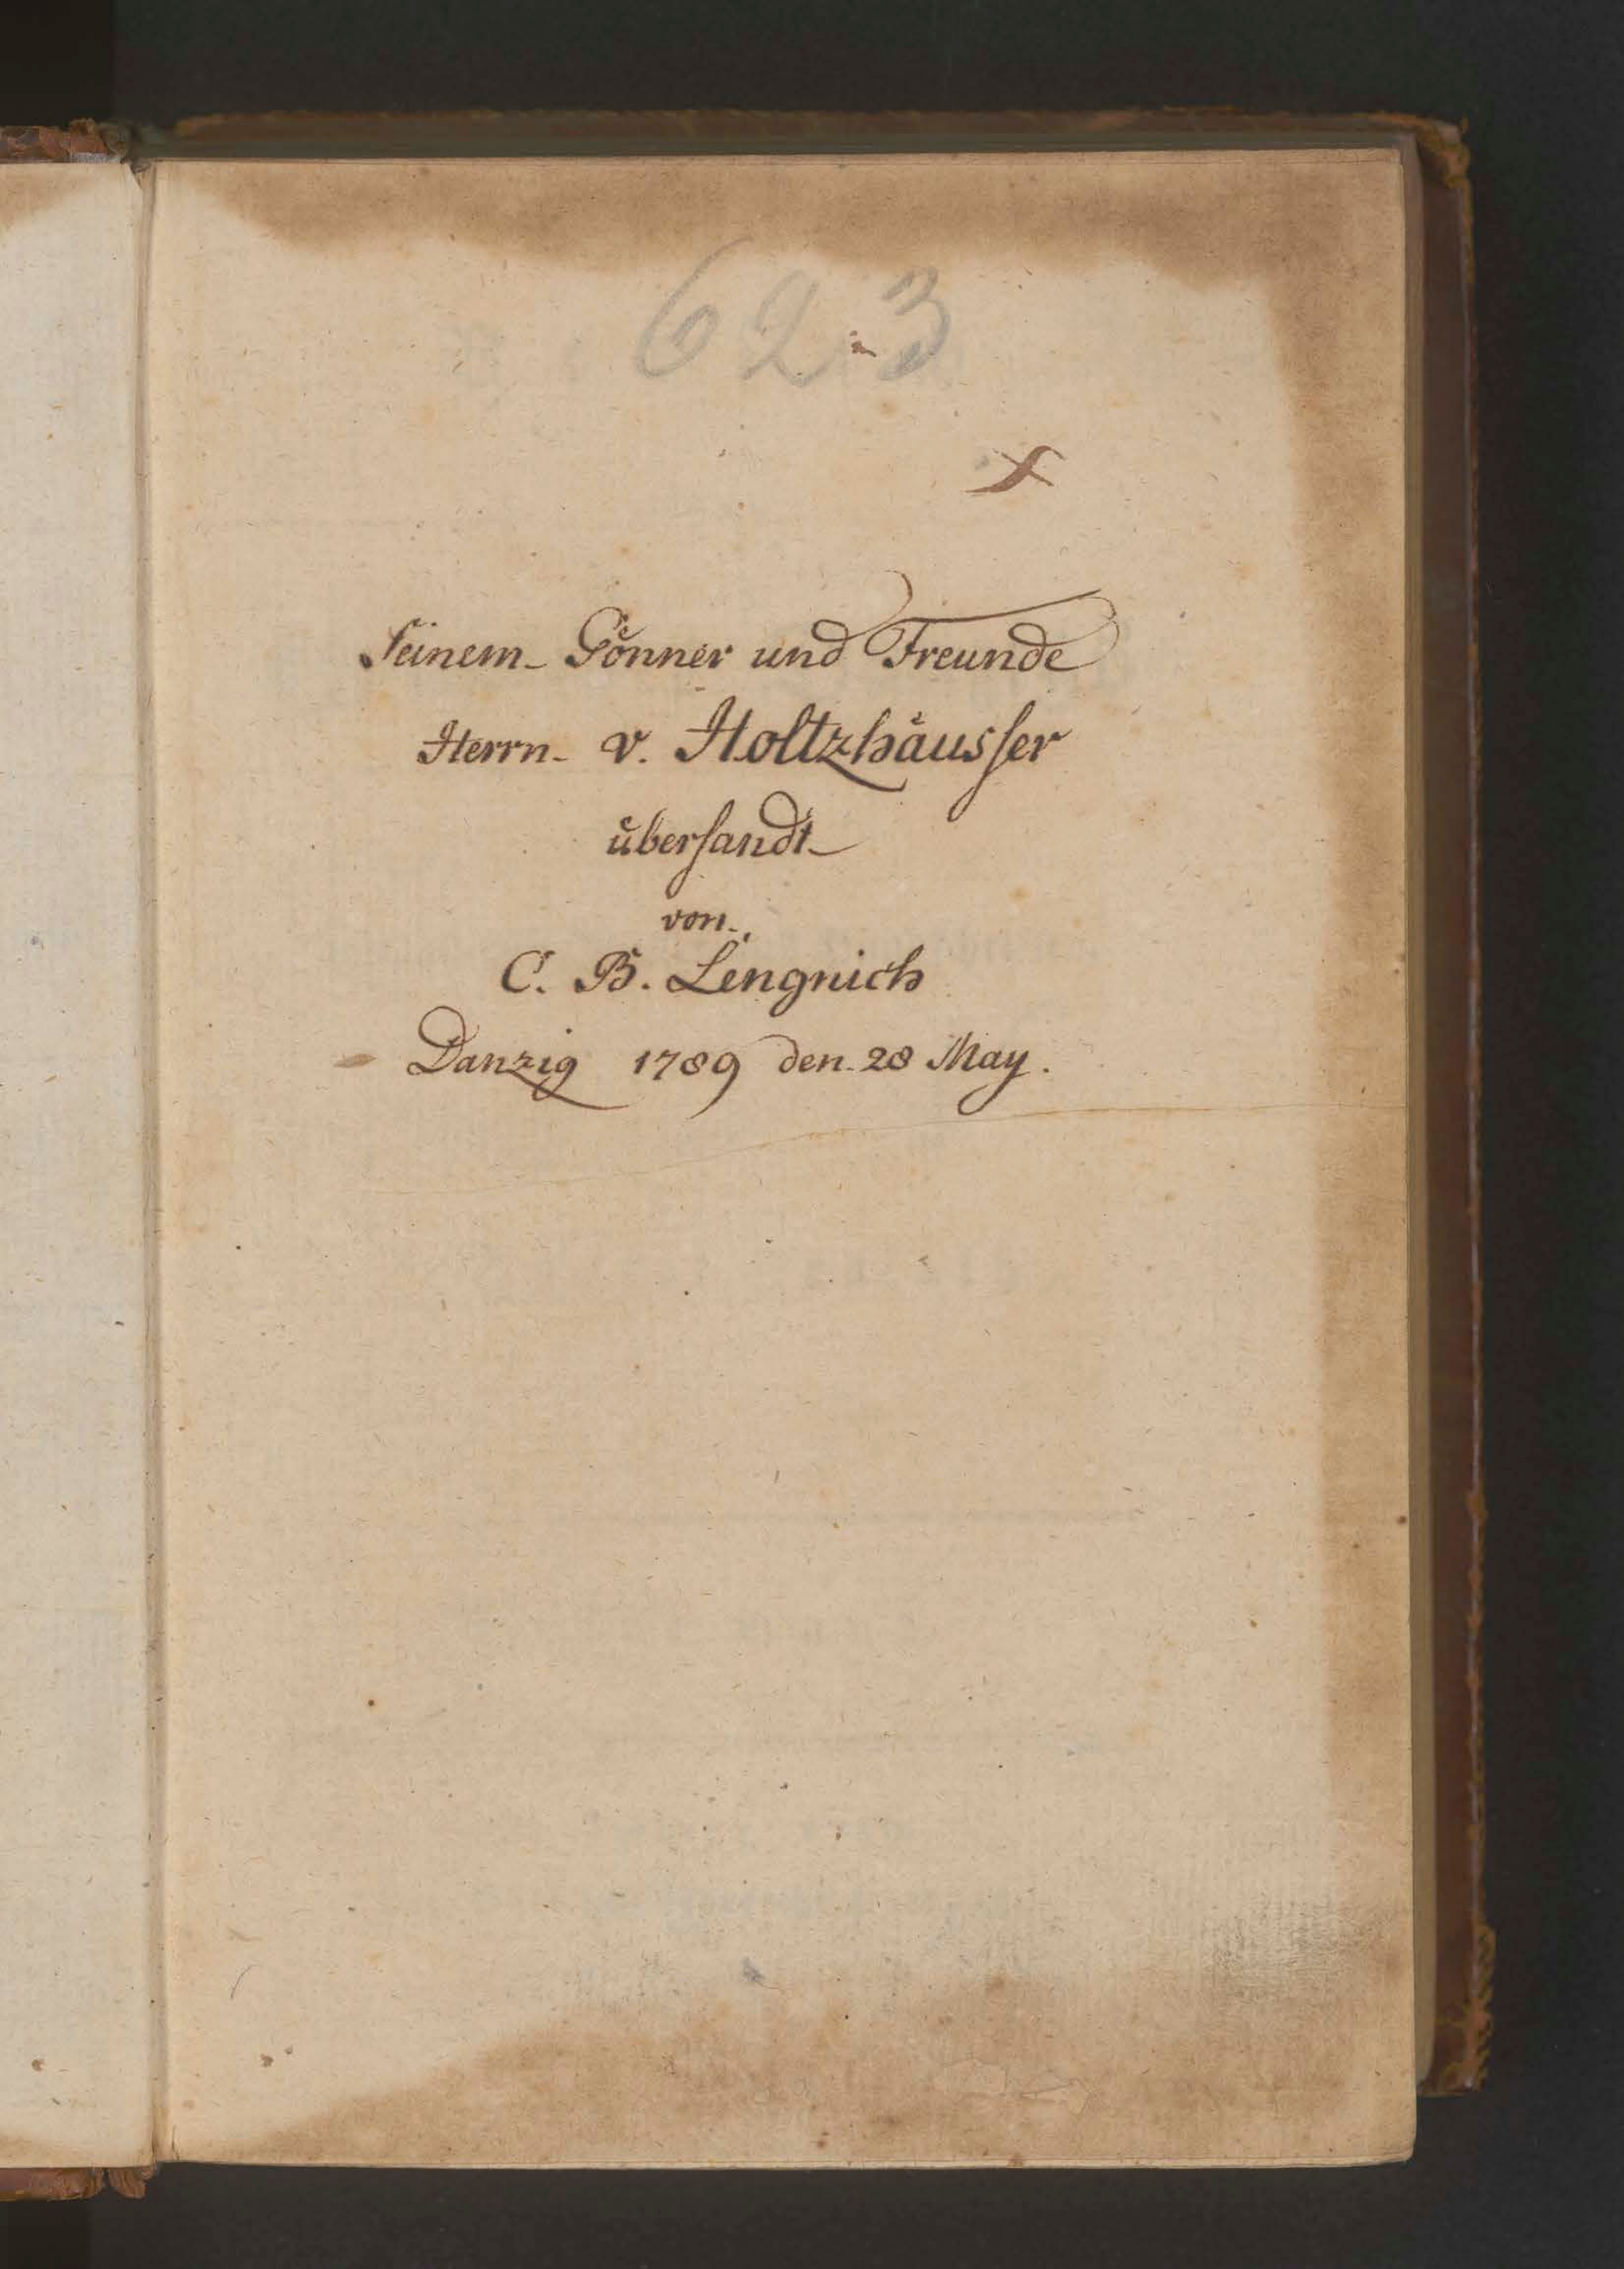 623
Seinem Gönner und Freunde
Herrn v. Holtzhäusser
übersandt
von
C. B. Lengnich
Danzig 1789 den 28 May.